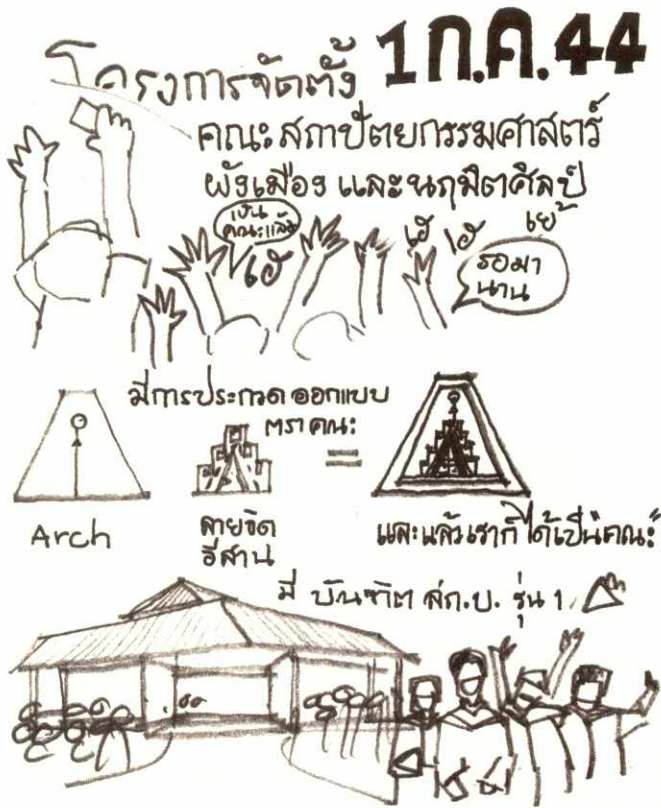 โครงการจัดตั้ง 1 ก.ค. 44
คณะสถาปัตยกรรมศาสตร์
ผังเมือง และนฤมิตศิลป์
เป็น
คณะแล้ว
เฮ้
เฮ้
เฮ้
เย้
รอมา
นาน
มีการประกวด ออกแบบ
ตราคณะ
=
Arch
ลายขิด
อีสาน
และแล้วเราก็ได้เป็น"คณะ"
มี บัณฑิต สถ.บ. รุ่น 1